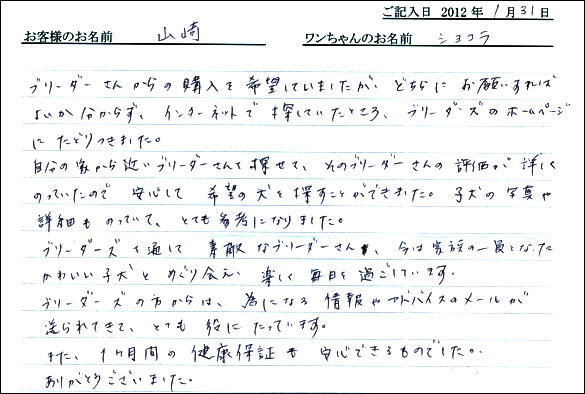 ご記入日 2012 年 1 月 31 日
お客様のお名前 山崎 ワンちゃんのお名前 ショコラ
ブリーダーさんからの購入を希望していましたが、どちらにお願いすれば
よいか分からず、インターネットで探していたところ、ブリーダーズのホームページ
にたどりつきました。
自分の家から近いブリーダーさんを探せて、そのブリーダーさんの評価が詳しく
のっていたので安心して希望の犬を探すことができました。子犬の写真や
詳細ものっていて、とても参考になりました。
ブリーダーズを通して素敵なブリーダーさん、今は家族の一員となった
かわいい子犬とめぐり会え、楽しく毎日を過ごしています。
ブリーダーズの方からは、為になる情報やアドバイスのメールが
送られてきて、とても役にたっています。
また、1ヶ月間の健康保証も安心できるものでした。
ありがとうございました。